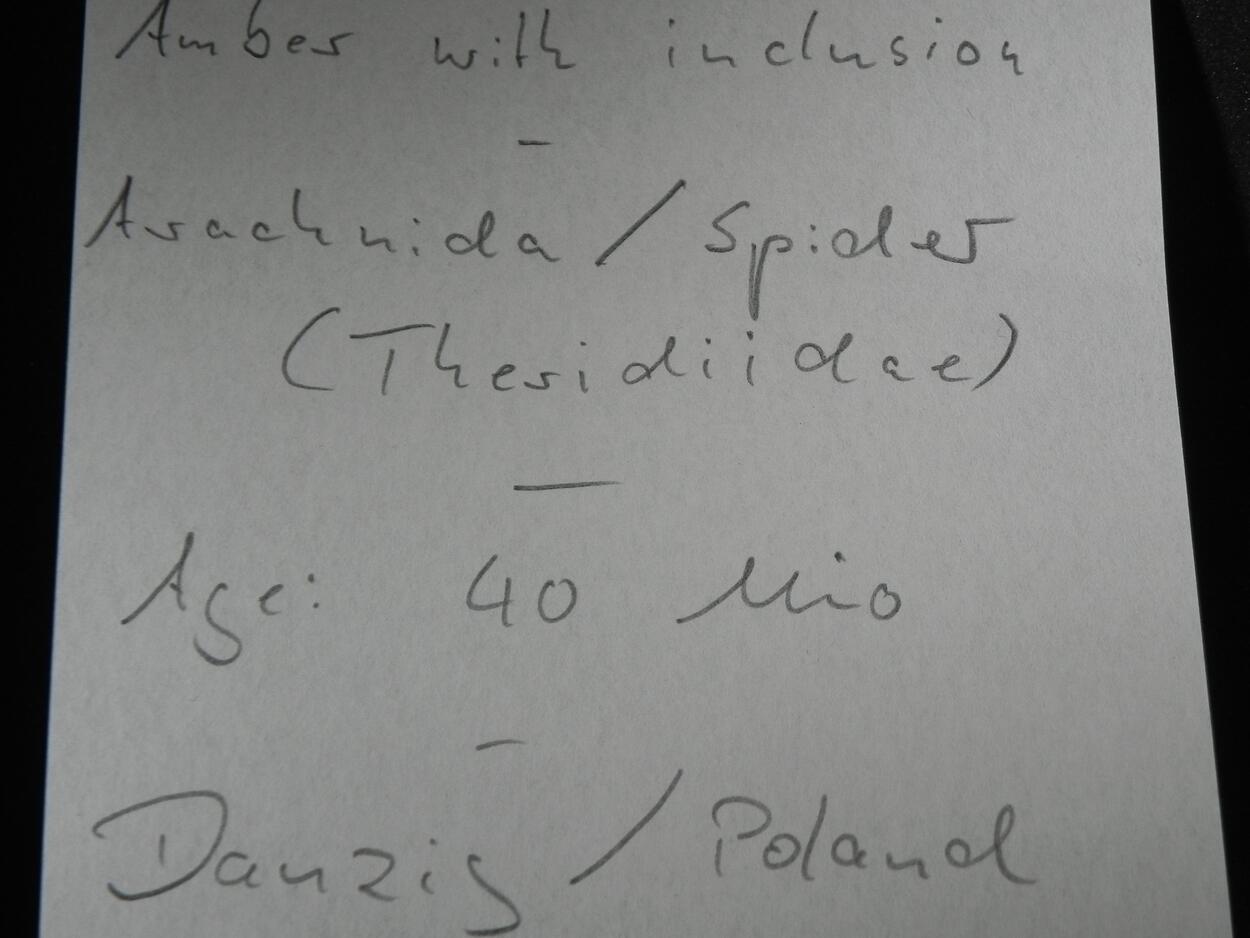 Amber with inclusion
-
Arachnida / Spider
(Theridiidae)
—
Age: 40 Mio
-
Danzig / Poland